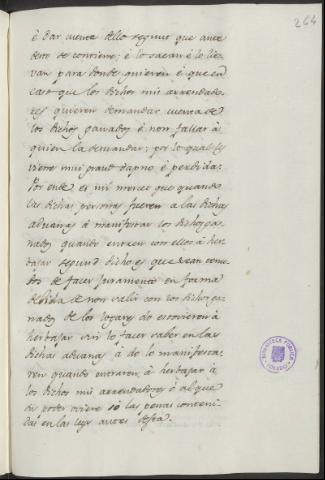 264
é dar cuenta dello segunt que ante
desto se contiene; é lo sacan é le lie-
van para donde quieren é que en
caso que los dichos mis arrendado-
res quieren demandar cuenta de
los dichos ganados é non fallar à
quien la demandar; por lo qual les
viene mui grant dapno é perdida:
Por ende es mi merced que quando
las dichas personas fueren a las dichas
aduanas á manifestar los dichos ga-
nados quando entren con ellos à her-
bajar segund dicho es que sean
dos de facer juramento en forma
debida de non salir con los dichos ga-
nados de los logares do estovieren à
herbajar sin lo facer saber en las
dichas aduanas à do lo manifesta-
ren quando entraren à herbajar à
los dichos mis arrendadores ó al que
su poder oviere so las penas conteni-
das en las leys antes desta.
BIBLIOTECA PUBLICA
TOLEDO